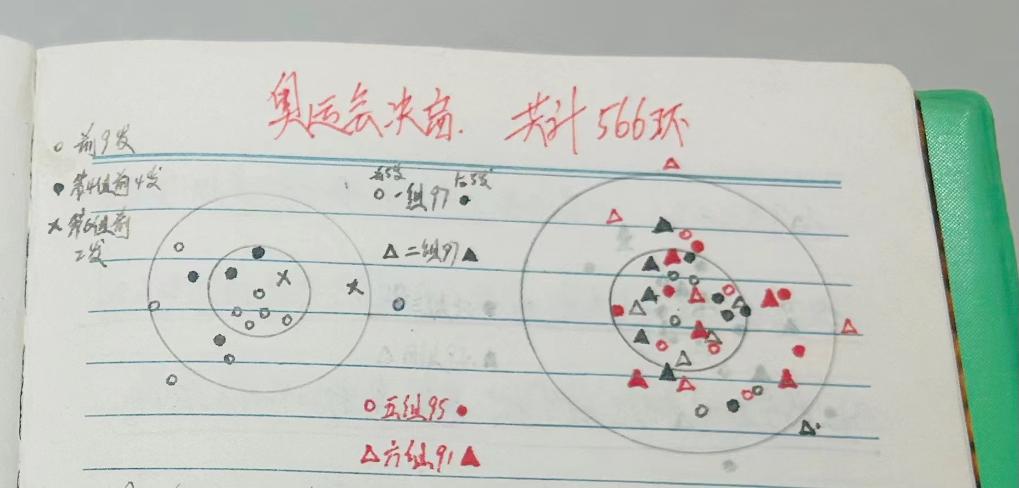 奥运会决赛. 共计566环
前9发
第4组前4发
第6组前
二发
前5发 后5发
一组97
二组97
五组95
六组91